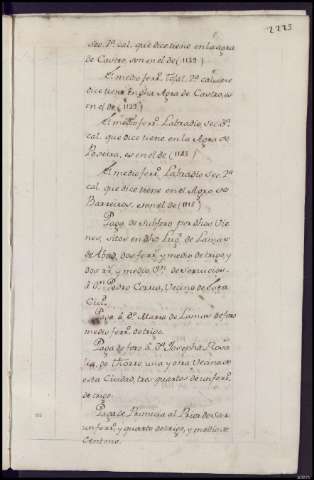 2225
sec. 2ª cal. que dice tiene en la agra
de Castro, es en el de (1129)
El medio ferr. Tojal 2ª cal. que
dice tiene en dha Agra de Castro, es
en el de (1129)
El medio ferr. Labradio sec. 3ª
cal. que dice tiene en la Agra de
es en el de (1128)
El medio ferr. Labradio sec. 2ª
cal. que dice tiene en el Agro de
Barreiros, es en el de (
Paga de Subforo por dhos Vie-
nes, sitos en dho Lug.r de Lamas
de Abad, dos ferr. y medio de trigo, y
dos rr. y medio Vn. de Servicios,
á Dn. Pedro Vecino de esta
Ciud.
Paga á Dª Maria de Lamas de foro
medio ferr. de trigo.
Paga de foro á Dª Josepha
de Torre una y otra Vecinas de
esta Ciudad, tres quartos de un ferr.
de trigo.
Paga de Primicia al Prior de Sar
un ferr. y quarto de trigo, y medio de
Centeno.